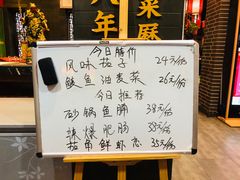 八年
菜厨
今日特价
风味茄子 24元/份
鲮鱼油麦菜 26元/份
今日推荐
砂锅鱼腩 38元/份
爆肥肠 38元/份
茄角鲜虾恋 35元/份